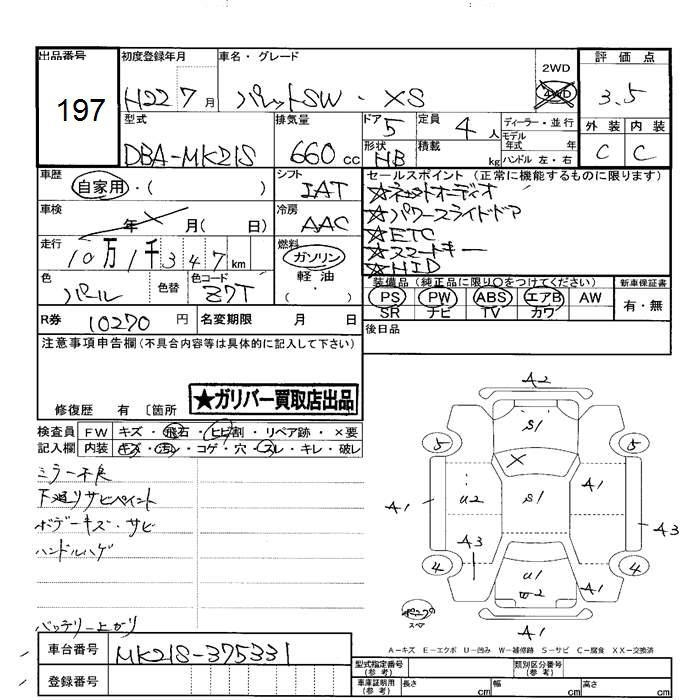 出品番号 初度登録年月 車名・グレード 評価点
197
H22 7月 パレットSW・XS 2WD 4WD 3.5
型式 排気量 ドア 5 定員 4人 ディーラー・並行 外装 内装
DBA-MK21S 660cc 形状 HB 積載 kg モデル年式 年 ハンドル 左・右 C C
車歴 自家用・( ) シフト IAT セールスポイント (正常に機能するものに限ります)
☆ネットオーディオ
☆パワースライドドア
☆ETC
☆スマートキー
☆HID
車検 年 月( 日) 冷房 AAC
走行 10万1千347km 燃料 ガソリン・軽油・( )
色 パール 色替 色コード Z7T
装備品 (純正品に限り〇をつけてください) 新車保証書
PS PW ABS エアB AW 有・無
SR ナビ TV カワ
R券 10270円 名変期限 月 日
後日品
注意事項申告欄 (不具合内容等は具体的に記入して下さい)
★ガリバー買取店出品
修復歴 有 〔箇所
検査員 FW キズ・飛石・ヒビ割・リペア跡・×要
記入欄 内装 キズ・汚レ・コゲ・穴・スレ・キレ・破レ
ミラー不良
下廻りサビペイント
ボデーキズ・サビ
ハンドルハゲ
バッテリー上がり
A2
S1
5 5
X
A1 U2 S1 A1 A3
A3
4 4
U1
W2 A1
A1
スペア
A-キズ E-エクボ U-凹み W-補修跡 S-サビ C-腐食 XX-交換済
車台番号 MK21S-375331
登録番号
型式指定番号 (参考) 類別区分番号 (参考)
車庫証明用 (参考) 長さ cm 幅 cm 高さ cm